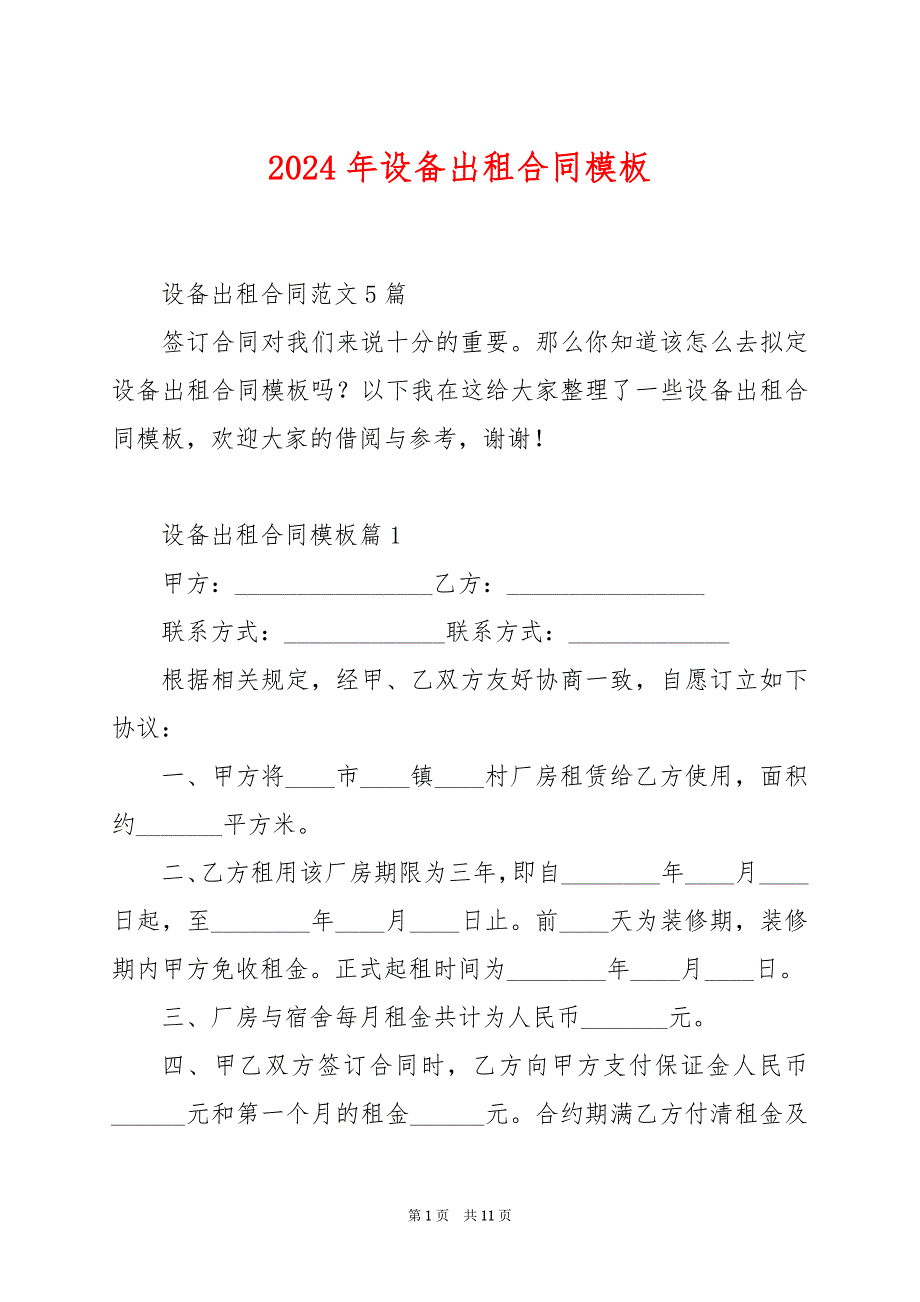 2024 年设备出租合同模板
设备出租合同范文 5 篇
签订合同对我们来说十分的重要。那么你知道该怎么去拟定
设备出租合同模板吗？以下我在这给大家整理了一些设备出租合
同模板，欢迎大家的借阅与参考，谢谢！
设备出租合同模板篇 1
甲方：________________乙方：________________
联系方式：_____________联系方式：_____________
根据相关规定，经甲、乙双方友好协商一致，自愿订立如下
协议：
一、甲方将____市____镇____村厂房租赁给乙方使用，面积
约_______平方米。
二、乙方租用该厂房期限为三年，即自________年____月____
日起，至________年____月____日止。前____天为装修期，装修
期内甲方免收租金。正式起租时间为________年____月____日。
三、厂房与宿舍每月租金共计为人民币_______元。
四、甲乙双方签订合同时，乙方向甲方支付保证金人民币
______元和第一个月的租金______元。合约期满乙方付清租金及
第 1 页 共 11 页